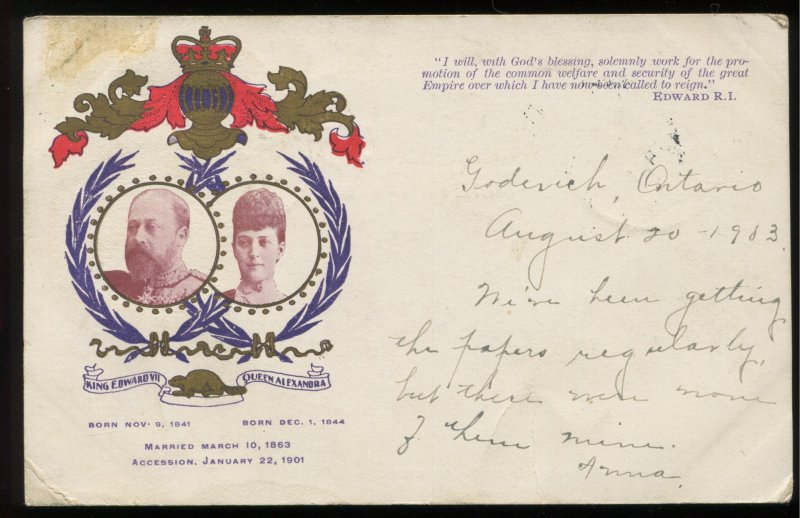 "I will, with God's blessing, solemnly work for the pro-
motion of the common welfare and security of the great
Empire over which I have now been called to reign."
EDWARD R.I.
Goderich, Ontario
August 20 - 1903
We've been getting
the papers regularly,
but there were none
of them mine.
Anna.
KING EDWARD VII
QUEEN ALEXANDRA
BORN NOV. 9, 1841
BORN DEC. 1, 1844
MARRIED MARCH 10, 1863
ACCESSION, JANUARY 22, 1901